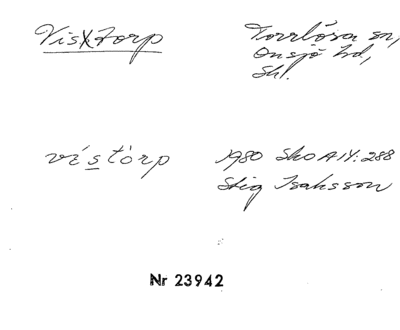 Vistorp
Torrlösa sn,
Onsjö hd,
Sk.
vístòrp
1980 SkO AIY: 288
Stig Isaksson
Nr 23942